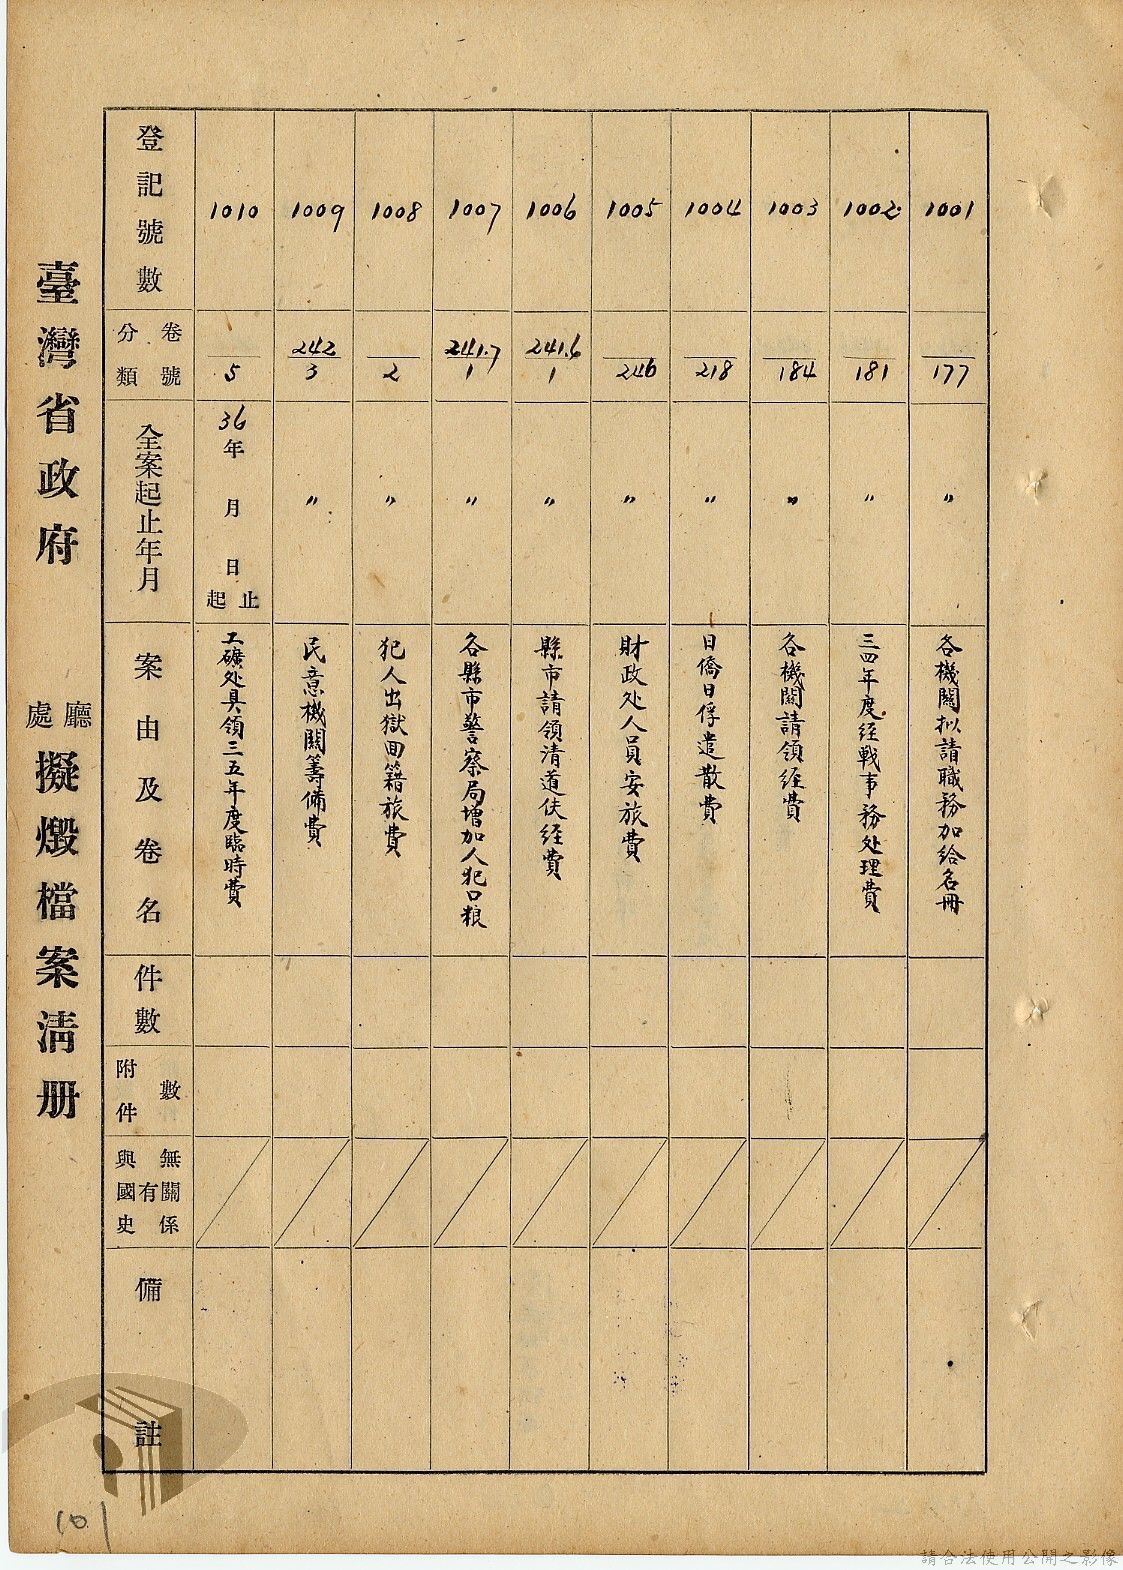 1001
177
〃
各機關拟請職務加給名冊
1002
181
〃
三四年度经戰事務处理費
1003
184
〃
各機關請領经費
1004
218
〃
日僑日俘遣散費
1005
246
〃
財政处人員安旅費
1006
241.6
1
〃
縣市請領清道伕经費
1007
241.7
1
〃
各縣市警察局增加人犯口粮
1008
2
〃
犯人出獄回籍旅費
1009
242
3
〃
民意機關籌備費
1010
5
36年 月 日
止
起
工礦处具領三五年度臨時費
登記號數
卷號
分類
全案起止年月
案由及卷名
件數
附件
數
與國史
有
無關係
備註
臺灣省政府
廳
處
擬燬檔案清册
101
請合法使用公開之影像